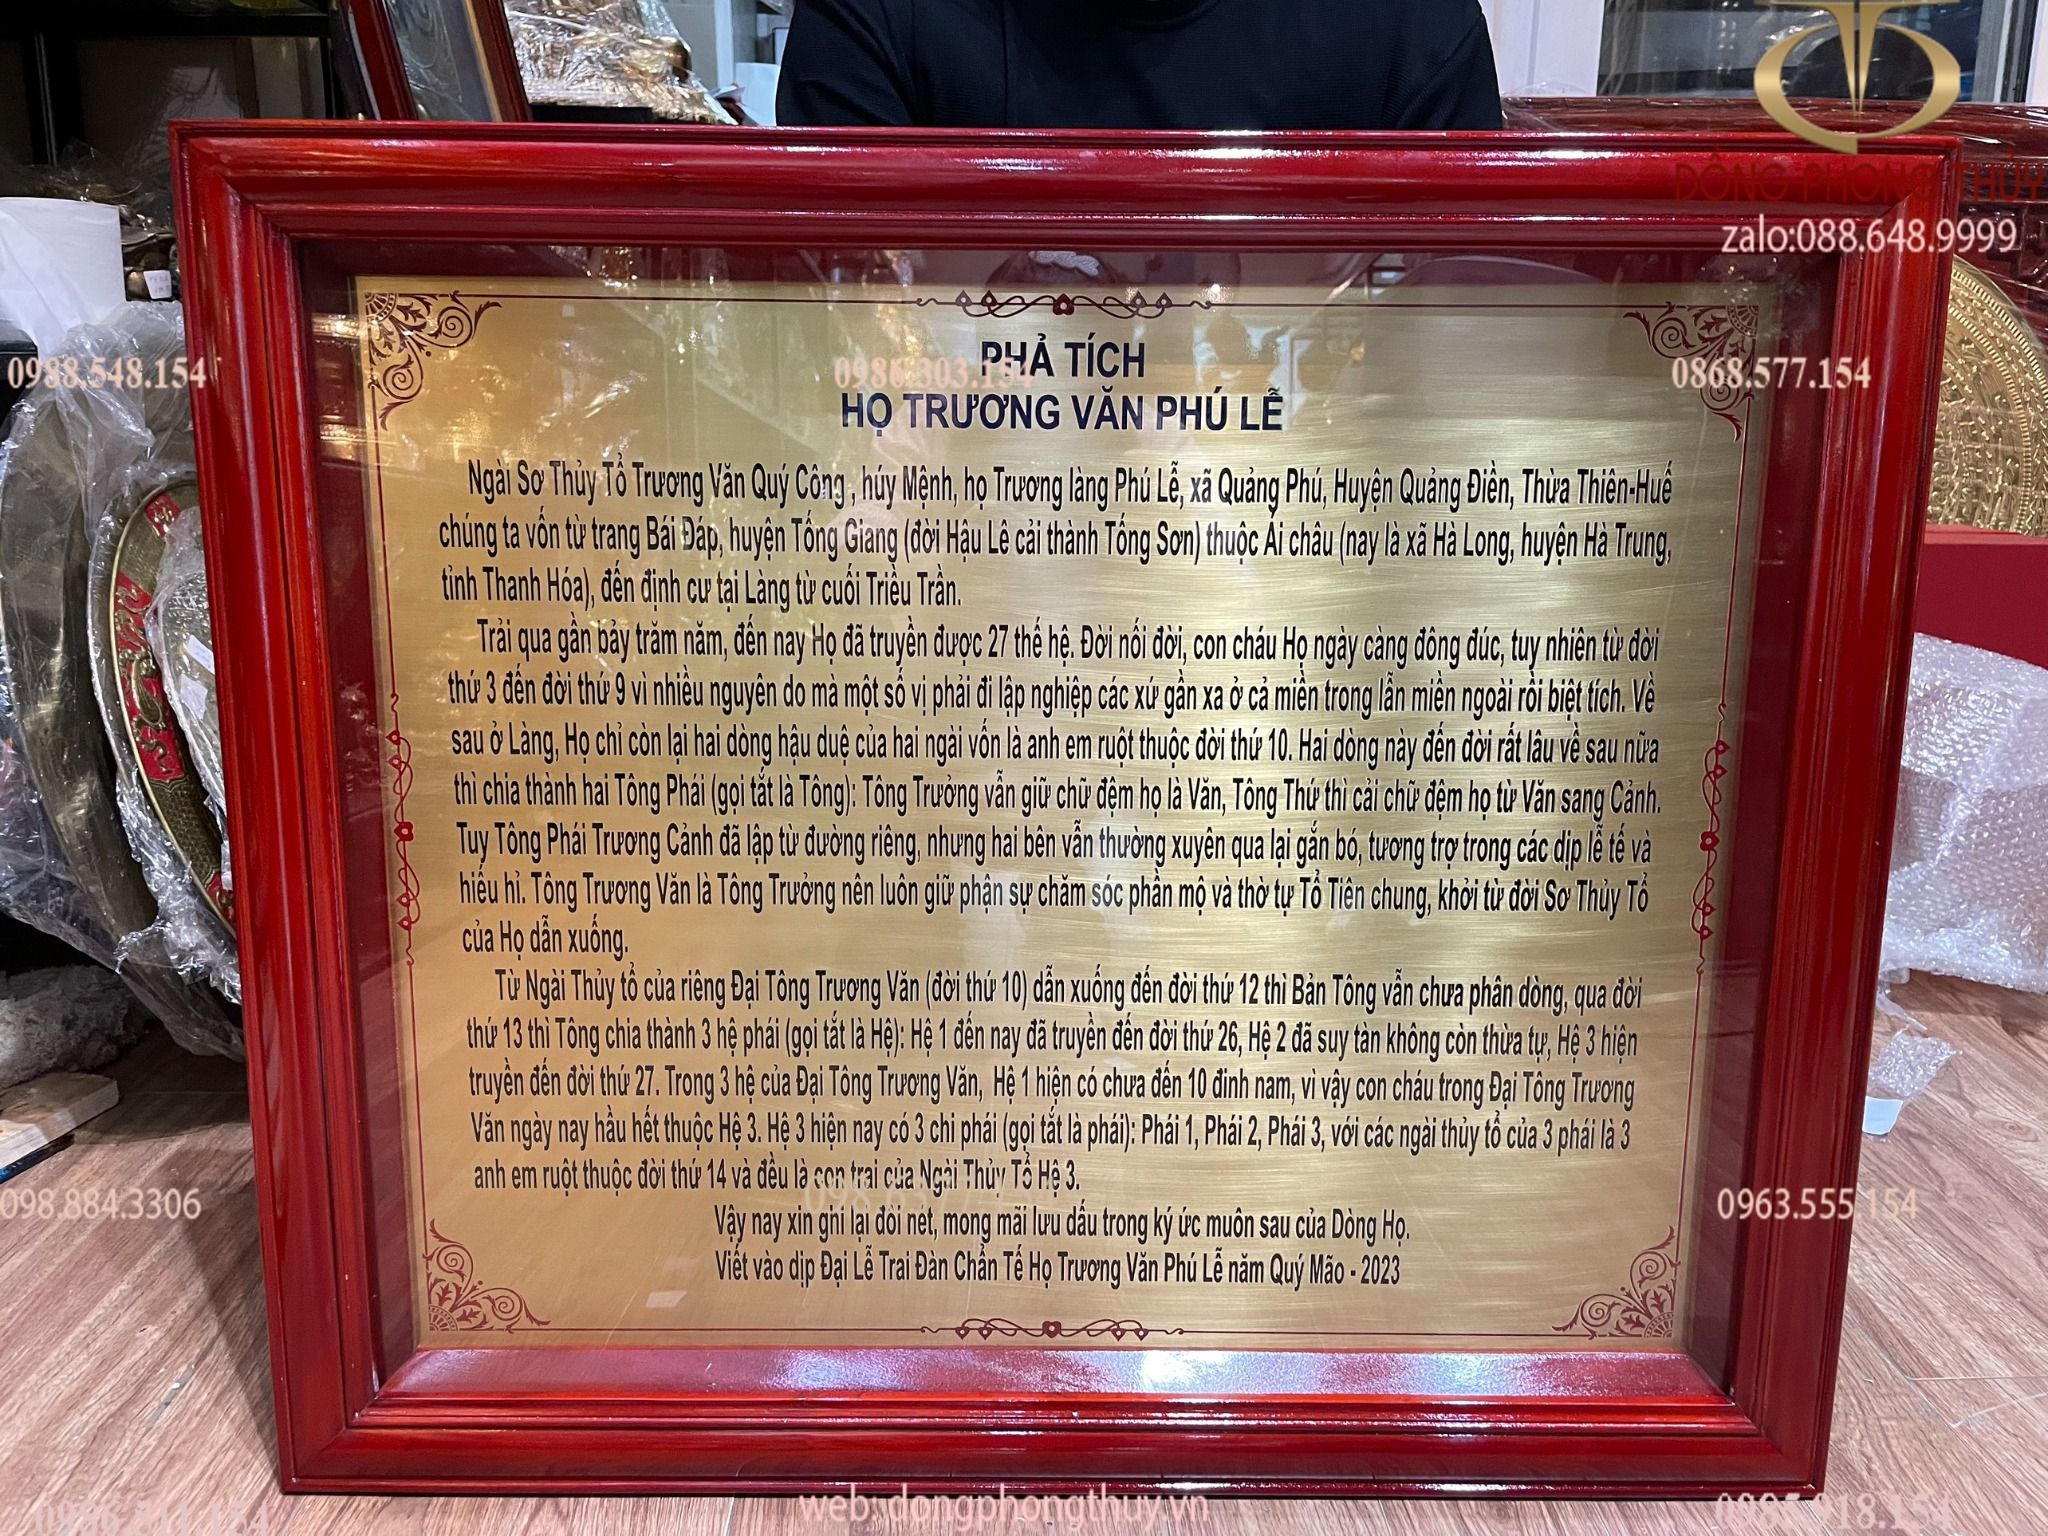 ĐỒNG PHONG THỦY
zalo:088.648.9999
0988.548.154
0986.303.154
0868.577.154
PHẢ TÍCH
HỌ TRƯƠNG VĂN PHÚ LỄ
Ngài Sơ Thủy Tổ Trương Văn Quý Công , húy Mệnh, họ Trương làng Phú Lễ, xã Quảng Phú, Huyện Quảng Điền, Thừa Thiên-Huế
chúng ta vốn từ trang Bái Đáp, huyện Tống Giang (đời Hậu Lê cải thành Tống Sơn) thuộc Ái châu (nay là xã Hà Long, huyện Hà Trung,
tỉnh Thanh Hóa), đến định cư tại Làng từ cuối Triều Trần.
Trải qua gần bảy trăm năm, đến nay Họ đã truyền được 27 thế hệ. Đời nối đời, con cháu Họ ngày càng đông đúc, tuy nhiên từ đời
thứ 3 đến đời thứ 9 vì nhiều nguyên do mà một số vị phải đi lập nghiệp các xứ gần xa ở cả miền trong lẫn miền ngoài rồi biệt tích. Về
sau ở Làng, Họ chỉ còn lại hai dòng hậu duệ của hai ngài vốn là anh em ruột thuộc đời thứ 10. Hai dòng này đến đời rất lâu về sau nữa
thì chia thành hai Tông Phái (gọi tắt là Tông): Tông Trưởng vẫn giữ chữ đệm họ là Văn, Tông Thứ thì cải chữ đệm họ từ Văn sang Cảnh.
Tuy Tông Phái Trương Cảnh đã lập từ đường riêng, nhưng hai bên vẫn thường xuyên qua lại gắn bó, tương trợ trong các dịp lễ tế và
hiếu hỉ. Tông Trương Văn là Tông Trưởng nên luôn giữ phận sự chăm sóc phần mộ và thờ tự Tổ Tiên chung, khởi từ đời Sơ Thủy Tổ
của Họ dẫn xuống.
Từ Ngài Thủy tổ của riêng Đại Tông Trương Văn (đời thứ 10) dẫn xuống đến đời thứ 12 thì Bản Tông vẫn chưa phân dòng, qua đời
thứ 13 thì Tông chia thành 3 hệ phái (gọi tắt là Hệ): Hệ 1 đến nay đã truyền đến đời thứ 26, Hệ 2 đã suy tàn không còn thừa tự, Hệ 3 hiện
truyền đến đời thứ 27. Trong 3 hệ của Đại Tông Trương Văn, Hệ 1 hiện có chưa đến 10 đinh nam, vì vậy con cháu trong Đại Tông Trương
Văn ngày nay hầu hết thuộc Hệ 3. Hệ 3 hiện nay có 3 chi phái (gọi tắt là phái): Phái 1, Phái 2, Phái 3, với các ngài thủy tổ của 3 phái là 3
anh em ruột thuộc đời thứ 14 và đều là con trai của Ngài Thủy Tổ Hệ 3.
098.884.3306
0963.555.154
Vậy nay xin ghi lại đôi nét, mong mãi lưu dấu trong ký ức muôn sau của Dòng Họ.
Viết vào dịp Đại Lễ Trai Đàn Chẩn Tế Họ Trương Văn Phú Lễ năm Quý Mão - 2023
web:dongphongthuy.vn